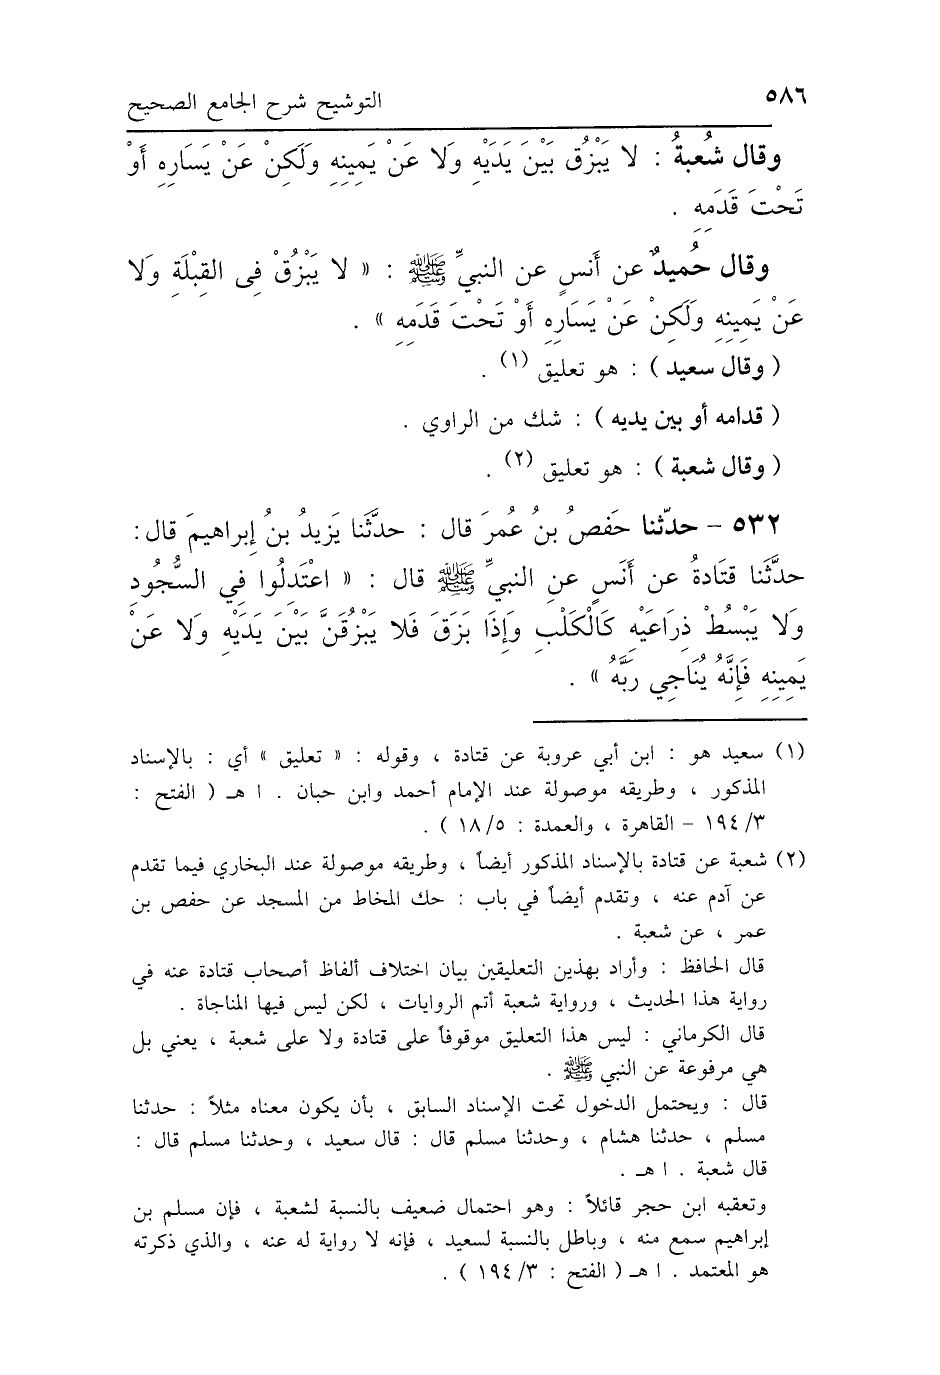 ٥٨٦ التوشيح شرح الجامع الصحيح
وقال شُعبةُ : لا يَبْزُق بَيْنَ يَدَيْهِ وَلا عَنْ يَمِينِهِ وَلَكِنْ عَنْ يَسَارِهِ أَوْ
تَحْتَ قَدَمِهِ .
وقال حُميدٌ عن أَنسٍ عن النبيِّ ﷺ : « لا يَبْزُقْ فِى القِبْلَةِ وَلا
عَنْ يَمِينِهِ وَلَكِنْ عَنْ يَسَارِهِ أَوْ تَحْتَ قَدَمِهِ » .
( وقال سعيد ) : هو تعليق (١) .
( قدامه أو بين يديه ) : شك من الراوي .
( وقال شعبة ) : هو تعليق (٢) .
٥٣٢ – حدّثنا حَفصُ بنُ عُمرَ قال : حدَّثَنا يَزيدُ بنُ إبراهيمَ قال:
حدَّثَنا قتَادةُ عن أَنَسٍ عنِ النبيِّ ﷺ قال : « اعْتَدِلُوا فِي السُّجُودِ
وَلا يَبْسُطْ ذِرَاعَيْهِ كَالْكَلْبِ وَإِذَا بَزَقَ فَلا يَبْزُقَنَّ بَيْنَ يَدَيْهِ وَلا عَنْ
يَمِينِهِ فَإِنَّهُ يُنَاجِي رَبَّهُ » .
(١) سعيد هو : ابن أبي عروبة عن قتادة ، وقوله : « تعليق » أي : بالإسناد
المذكور ، وطريقه موصولة عند الإمام أحمد وابن حبان . ا هـ ( الفتح :
٣/ ١٩٤ – القاهرة ، والعمدة : ٥/ ١٨ ) .
(٢) شعبة عن قتادة بالإسناد المذكور أيضاً ، وطريقه موصولة عند البخاري فيما تقدم
عن آدم عنه ، وتقدم أيضاً في باب : حك المخاط من المسجد عن حفص بن
عمر ، عن شعبة .
قال الحافظ : وأراد بهذين التعليقين بيان اختلاف ألفاظ أصحاب قتادة عنه في
رواية هذا الحديث ، ورواية شعبة أتم الروايات ، لكن ليس فيها المناجاة .
قال الكرماني : ليس هذا التعليق موقوفاً على قتادة ولا على شعبة ، يعني بل
هي مرفوعة عن النبي ﷺ .
قال : ويحتمل الدخول تحت الإسناد السابق ، بأن يكون معناه مثلاً : حدثنا
مسلم ، حدثنا هشام ، وحدثنا مسلم قال : قال سعيد ، وحدثنا مسلم قال :
قال شعبة . ا هـ .
وتعقبه ابن حجر قائلاً : وهو احتمال ضعيف بالنسبة لشعبة ، فإن مسلم بن
إبراهيم سمع منه ، وباطل بالنسبة لسعيد ، فإنه لا رواية له عنه ، والذي ذكرته
هو المعتمد . ا هـ ( الفتح : ٣/ ١٩٤ ) .